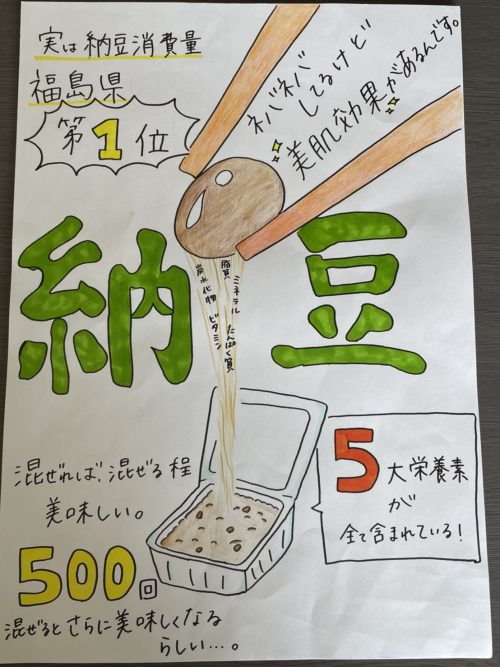 実は納豆消費量
福島県
第1位
ネバネバ
してるけど
美肌効果があるんです。
納豆
炭水化物
ビタミン
脂質
ミネラル
たんぱく質
混ぜれば、混ぜる程
美味しい。
500回
混ぜるとさらに美味しくなる
らしい…。
5大栄養素
が
全て含まれている!